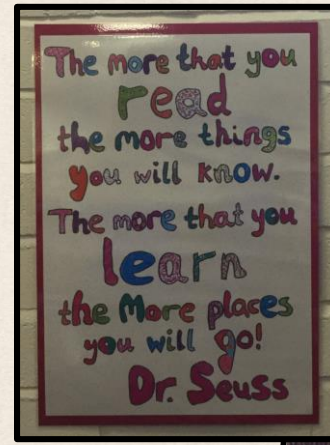 The more that you
read
the more things
you will know.
The more that you
learn
the More places
you will go!
Dr. Seuss